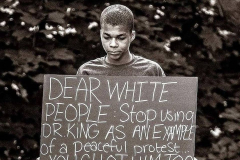 DEAR WHITE
PEOPLE: Stop using
DR KING AS AN EXAMPLE
of a peaceful protest.
YOU SHOT HIM TOO